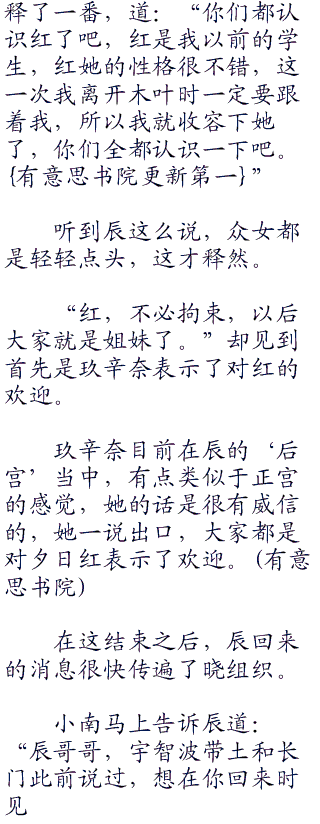 释了一番，道：“你们都认
识红了吧，红是我以前的学
生，红她的性格很不错，这
一次我离开木叶时一定要跟
着我，所以我就收容下她
了，你们全都认识一下吧。
{有意思书院更新第一}”
听到辰这么说，众女都
是轻轻点头，这才释然。
“红，不必拘束，以后
大家就是姐妹了。”却见到
首先是玖辛奈表示了对红的
欢迎。
玖辛奈目前在辰的‘后
宫’当中，有点类似于正宫
的感觉，她的话是很有威信
的，她一说出口，大家都是
对夕日红表示了欢迎。(有意
思书院)
在这结束之后，辰回来
的消息很快传遍了晓组织。
小南马上告诉辰道：
“辰哥哥，宇智波带土和长
门此前说过，想在你回来时
见